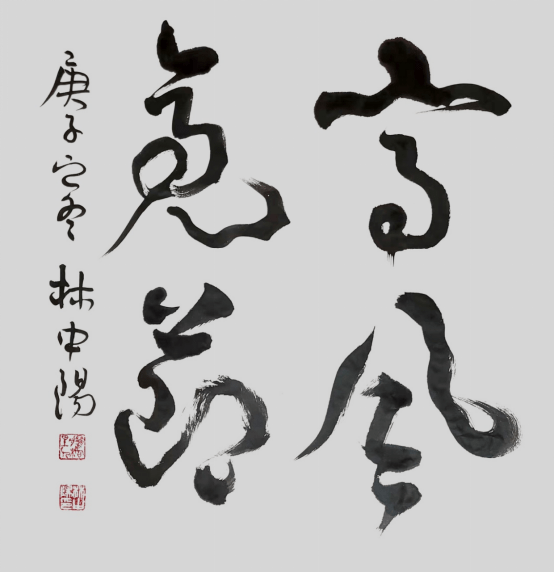 高風
亮節
庚子之冬 林中陽